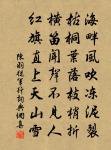 海畔風吹凍泥裂
梧桐葉落枝梢折
橫笛聞聲不見人
紅旗直上天山雪
陳羽從軍行詞典網書